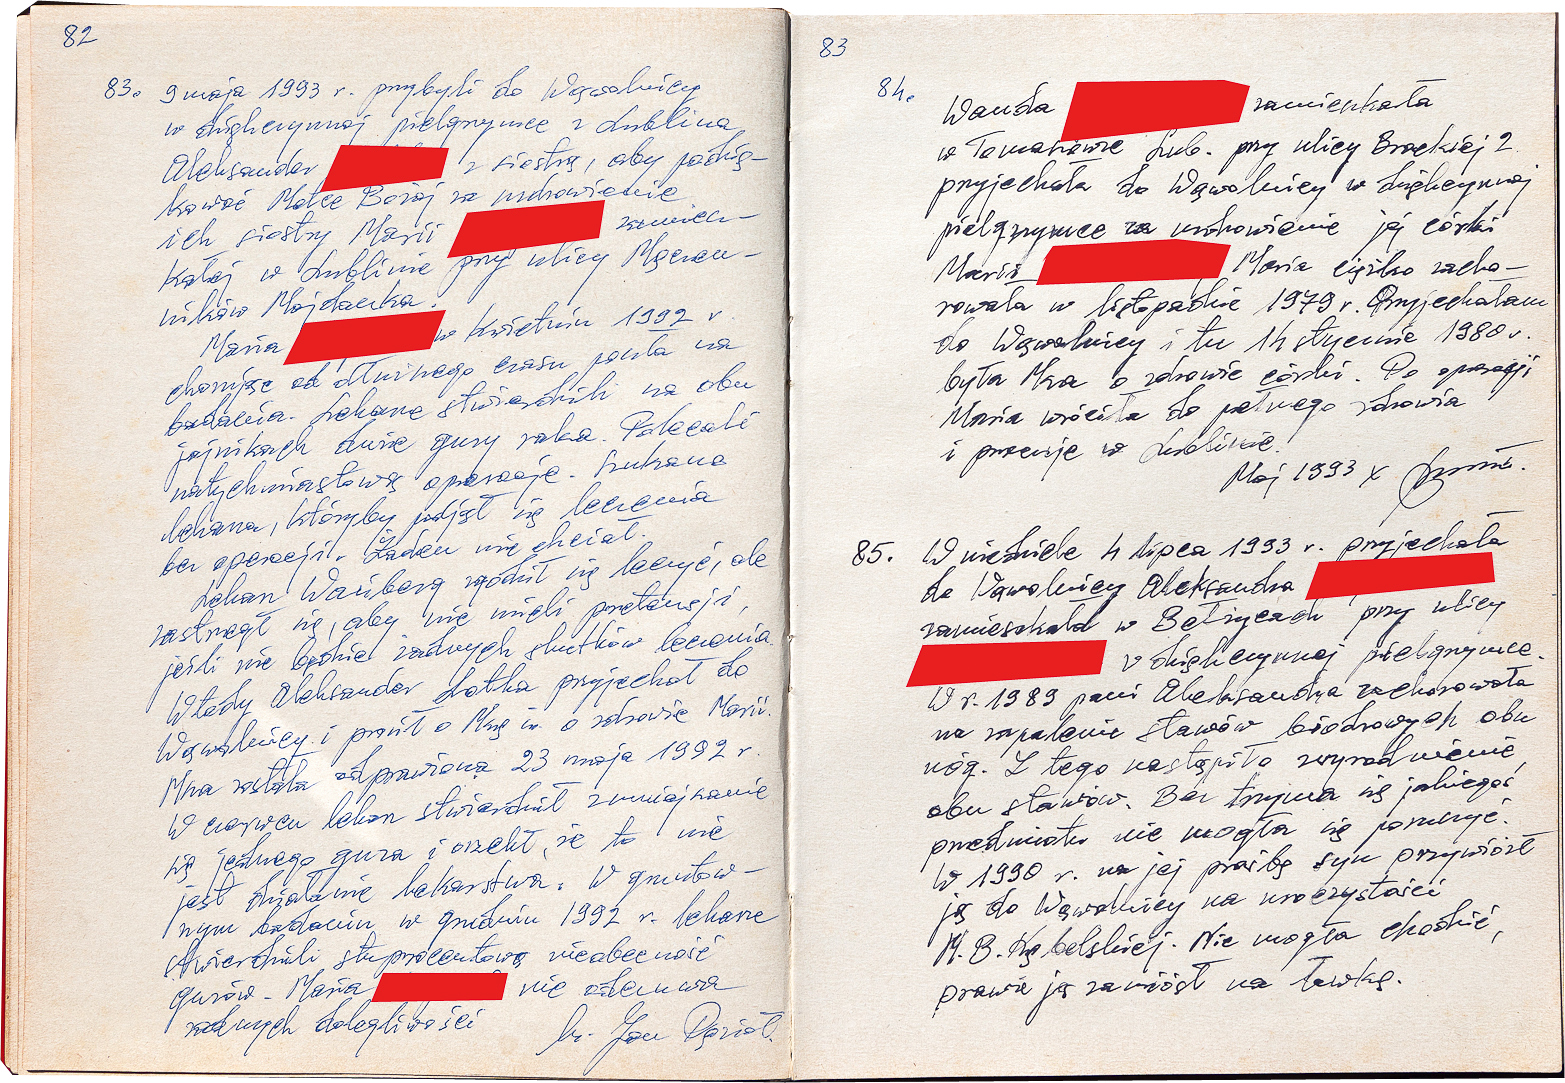 82
83. 9 maja 1993 r. przybyli do Wąwolnicy
w dziękczynnej pielgrzymce z Lublina
Aleksander z siostrą, aby podzię-
kować Matce Bożej za uzdrowienie
ich siostry Marii zamiesz-
kałej w Lublinie przy ulicy Męczen-
ników Majdanka.
Maria w kwietniu 1992 r.
chorując od dłuższego czasu poszła na
badania. Lekarze stwierdzili na obu
jajnikach dwie guzy raka. Polecali
natychmiastową operację. Szukano
lekarza, któryby podjął się leczenia
bez operacji. Żaden nie chciał.
Lekarz zgodził się leczyć, ale
zastrzegł się, aby nie mieli pretensji,
jeśli nie będzie żadnych skutków leczenia.
Wtedy Aleksander przyjechał do
Wąwolnicy i prosił o Mszę św. o zdrowie Marii.
Msza została odprawiona 23 maja 1992 r.
W czerwcu lekarz stwierdził zmniejszenie
się jednego guza i orzekł, że to nie
jest działanie lekarstwa. W gruntow-
nym badaniu w grudniu 1992 r. lekarze
stwierdzili stuprocentową nieobecność
guzów. Maria nie odczuwa
żadnych dolegliwości
ks. Jan
83
84. Wanda zamieszkała
w Tomaszowie Lub. przy ulicy Brackiej 2
przyjechała do Wąwolnicy w dziękczynnej
pielgrzymce za uzdrowienie jej córki
Marii Maria ciężko zacho-
rowała w listopadzie 1979 r. Przyjechałam
do Wąwolnicy i tu 14 stycznia 1980 r.
była Msza o zdrowie córki. Po operacji
Maria wróciła do pełnego zdrowia
i pracuje w Lublinie.
Maj 1993 x
85. W niedzielę 4 lipca 1993 r. przyjechała
do Wąwolnicy Aleksandra
zamieszkała w Bełżycach przy ulicy
w dziękczynnej pielgrzymce.
W r. 1989 pani Aleksandra zachorowała
na zapalenie stawów biodrowych obu
nóg. Z tego nastąpiło zwyrodnienie
obu stawów. Bez trzymania się jakiegoś
przedmiotu nie mogła się poruszyć.
W 1990 r. na jej prośbę syn przywiózł
ją do Wąwolnicy na uroczystości
M. B. Kębelskiej. Nie mogła chodzić,
prawie ją zaniósł na ławkę.